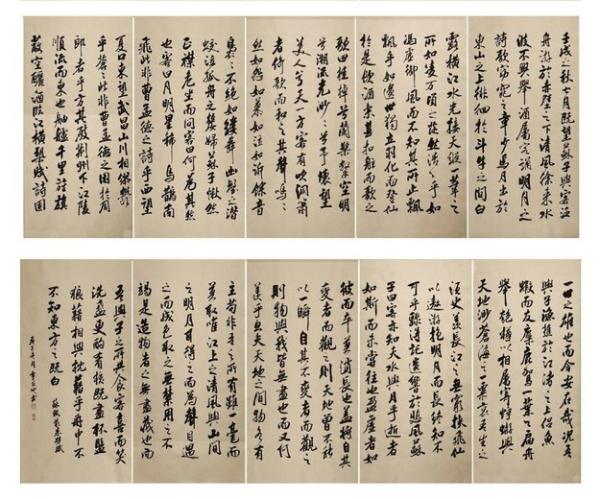 壬戌之秋七月既望蘇子與客泛
舟游於赤壁之下清風徐來水
波不興舉酒屬客誦明月之
詩歌窈窕之章少焉月出於
東山之上徘徊於斗牛之間白
露橫江水光接天縱一葦之
所如凌萬頃之茫然浩浩乎如
馮虛御風而不知其所止飄
飄乎如遺世獨立羽化而登仙
於是飲酒樂甚扣舷而歌之
歌曰桂棹兮蘭槳擊空明
兮溯流光渺渺兮予懷望
美人兮天一方客有吹洞簫
者倚歌而和之其聲嗚嗚
然如怨如慕如泣如訴餘音
裊裊不絕如縷舞幽壑之潛
蛟泣孤舟之嫠婦蘇子愀然
正襟危坐而問客曰何為其然
也客曰月明星稀烏鵲南
飛此非曹孟德之詩乎西望
夏口東望武昌山川相繆鬱
乎蒼蒼此非曹孟德之困於周
郎者乎方其破荊州下江陵
順流而東也舳艫千里旌旗
蔽空釃酒臨江橫槊賦詩固
一世之雄也而今安在哉況吾
與子漁樵於江渚之上侶魚
蝦而友麋鹿駕一葉之扁舟
舉匏樽以相屬寄蜉蝣與
天地渺滄海之一粟哀吾生之
須臾羨長江之無窮挾飛仙
以遨遊抱明月而長終知不
可乎驟得託遺響於悲風蘇
子曰客亦知夫水與月乎逝者
如斯而未嘗往也盈虛者如
彼而卒莫消長也蓋將自其
變者而觀之則天地曾不能
以一瞬自其不變者而觀之
則物與我皆無盡也而又何
羨乎且夫天地之間物各有
主苟非吾之所有雖一毫而
莫取惟江上之清風與山間
之明月耳得之而為聲目遇
之而成色取之無禁用之不
竭是造物者之無盡藏也而
吾與子之所共食客喜而笑
洗盞更酌肴核既盡杯盤
狼藉相與枕藉乎舟中
不知東方之既白